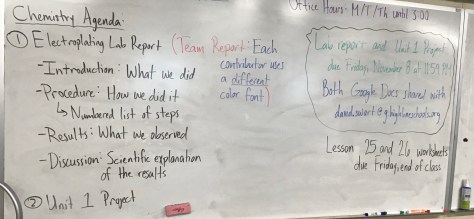 Chemistry Agenda:
① Electroplating Lab Report (Team Report: Each
contributor uses
a different
color font)
-Introduction: What we did
-Procedure: How we did it
↳ Numbered list of steps
-Results: What we observed
-Discussion: Scientific explanation
of the results
② Unit 1 Project
Office Hours- M/T/Th until 5:00
Lab report and Unit 1 Project
due Friday, November 8 at 11:59 PM
Both Google Docs shared with
Lesson 25 and 26 worksheets
due Friday, end of class